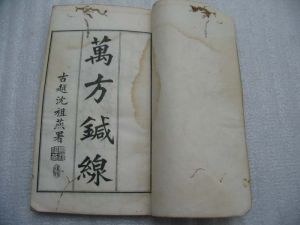 萬方鍼線
古越沈祖燕署